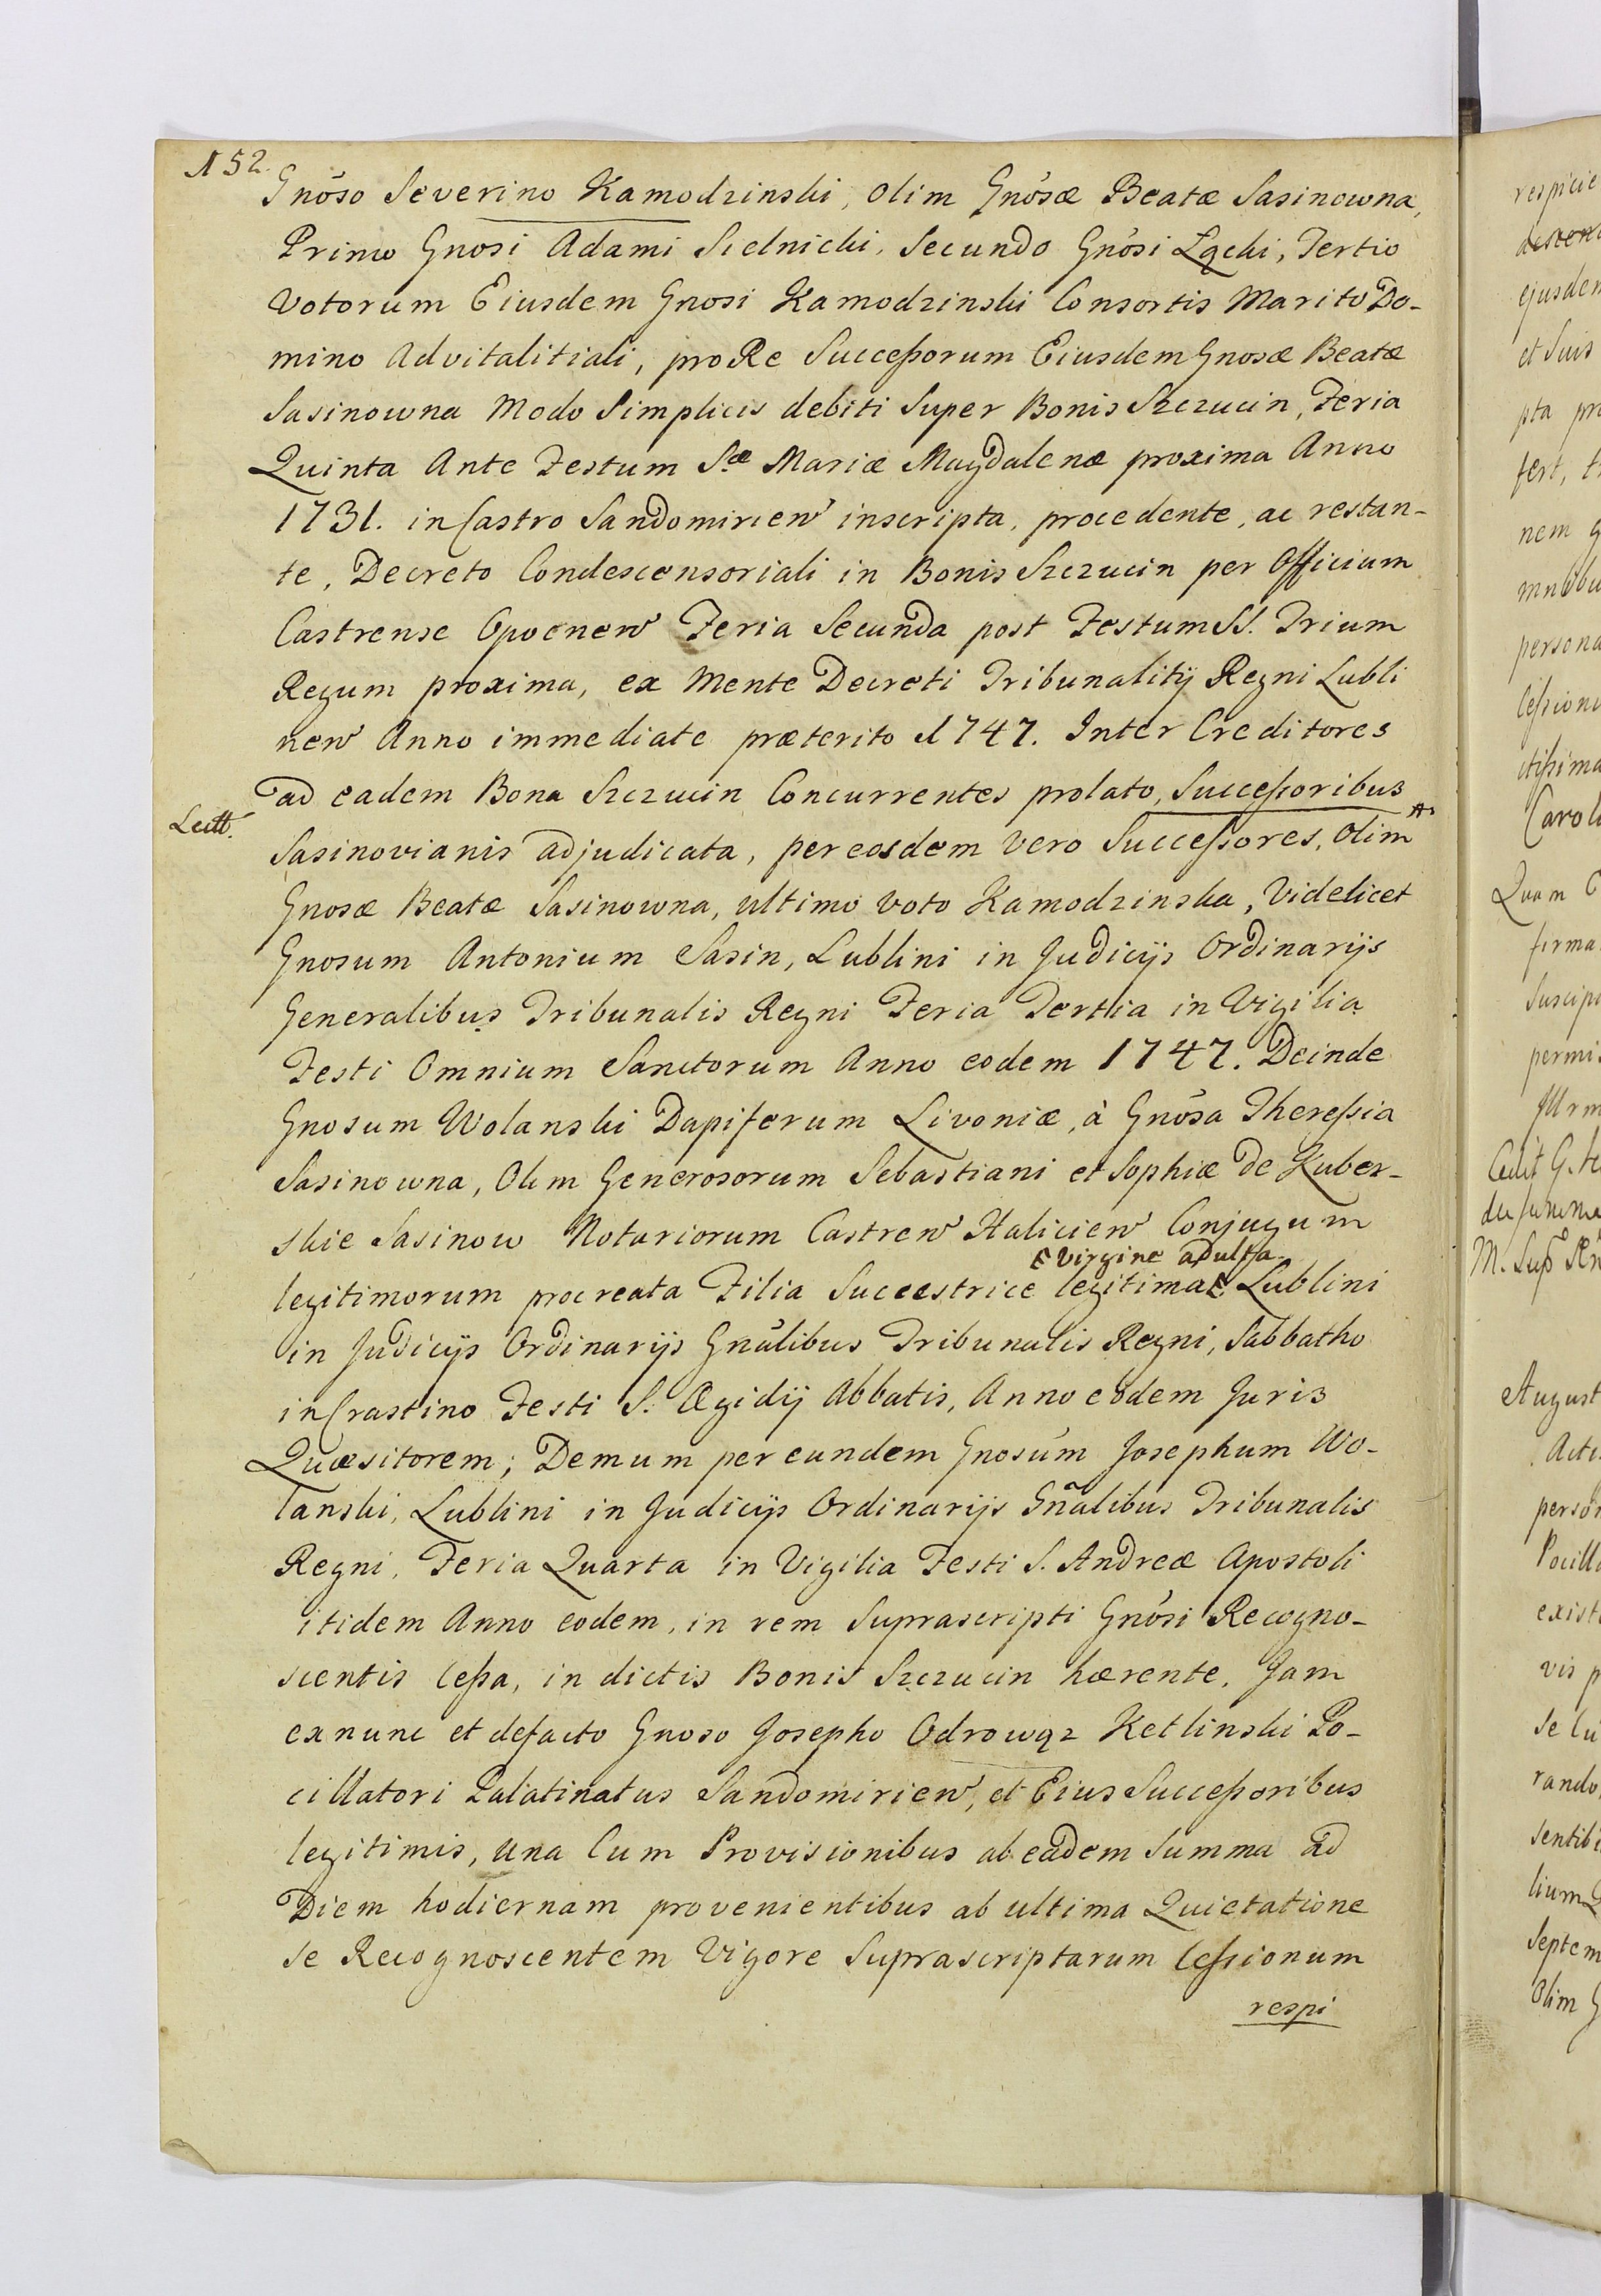 N 52.
Gnōso Severino Kamodzinski, olim Gnōsæ Beatæ Sasinowna,
Primo Gnosi Adami Sielnicki, Secundo Gnōsi Łącki, Tertio
Votorum Eiusdem Gnosi Kamodzinski Consortis Marito Do-
mino Advitalitiali, pro Re Succeßorum Eiusdem Gnosæ Beatæ
Sasinowna Modo Simplicis debiti Super Bonis Szczucin, Feria
Quinta Ante Festum S.æ Mariæ Magdalenæ proxima Anno
1731. in Castro Sandomirien inscripta, procedente, ac restan-
te, Decreto Condescensoriali in Bonis Szczucin per Officium
Castrense Opocnen Feria Secunda post Festum SS. Trium
Regum proxima, ex Mente Decreti Tribunalitij Regni Lubli
nen Anno immediate præterito 1747. Inter Creditores
ad eadem Bona Szczucin Concurrentes prolato, Succeßoribus
Sasinovianis adjudicata, per eosdem vero Succeßores, Olim
Gnosæ Beatæ Sasinowna, ultimo voto Kamodzinska, Videlicet
Gnosum Antonium Sasin, Lublini in Judicijs Ordinarijs
Generalibus Tribunalis Regni Feria Tertia in Vigilia
Festi Omnium Sanctorum Anno eodem 1747. Deinde
Gnosum Wolanski Dapiferum Livoniæ, à Gnōsa Thereßia
Sasinowna, Olim Generosorum Sebastiani et Sophiæ de Kuber-
skie Sasinow Notariorum Castren Halicien Conjugum
virgine adulta
legitimorum procreata Filia Succestrice legitima Lublini
in Judicijs Ordinarijs Gnālibus Tribunalis Regni, Sabbatho
in Crastino Festi S. Ægidij Abbatis, Anno eodem Juris
Quæsitorem; Demum per eundem Gnosum Josephum Wo-
lanski, Lublini in Judicijs Ordinarijs Gnãlibus Tribunalis
Regni, Feria Quarta in Vigilia Festi S. Andreæ Apostoli
itidem Anno eodem, in rem Suprascripti Gnōsi Recogno-
scentis Ceßa, in dictis Bonis Szczucin hærente, Jam
ex nunc et defacto Gnoso Josepho Odrowąz Ketlinski Po-
cillatori Palatinatus Sandomirien, et Eius Succeßoribus
legitimis, una Cum Provisionibus ab eadem Summa ad
Diem hodiernam provenientibus ab ultima Quietatione
se Recognoscentem Vigore Suprascriptarum Ceßionum
respi
respicie
ejusdem
et Suis
pta pr
fert, t
nem g
persona
Carol
Quam
firma
Suscip
August
Acti
person
Pocill
exist
vis p
rando
Septem
Olim G